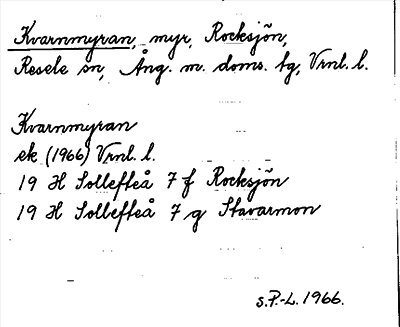 Kvarnmyran, myr, Rocksjön,
Resele sn, Ång. m. doms. tg, Vrnl. l.
Kvarnmyran
ek (1966) Vrnl. l.
19 H Sollefteå 7 f Rocksjön
19 H Sollefteå 7 g Stavarmon
S.P.-L. 1966.